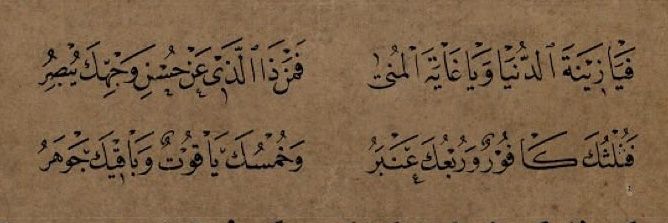 فَيَا زِينَةَ ٱلدُّنْيَا وَيَا غَايَةَ ٱلْمُنَىٰ فَمَنْ ذَا ٱلَّذِي عَنْ حُسْنِ وَجْهِكَ يُبْصِرُ
فَثُلْثُكَ كَافُورٌ وَرُبْعُكَ عَنْبَرُ وَخُمْسُكَ يَاقُوتٌ وَبَاقِيكَ جَوْهَرُ